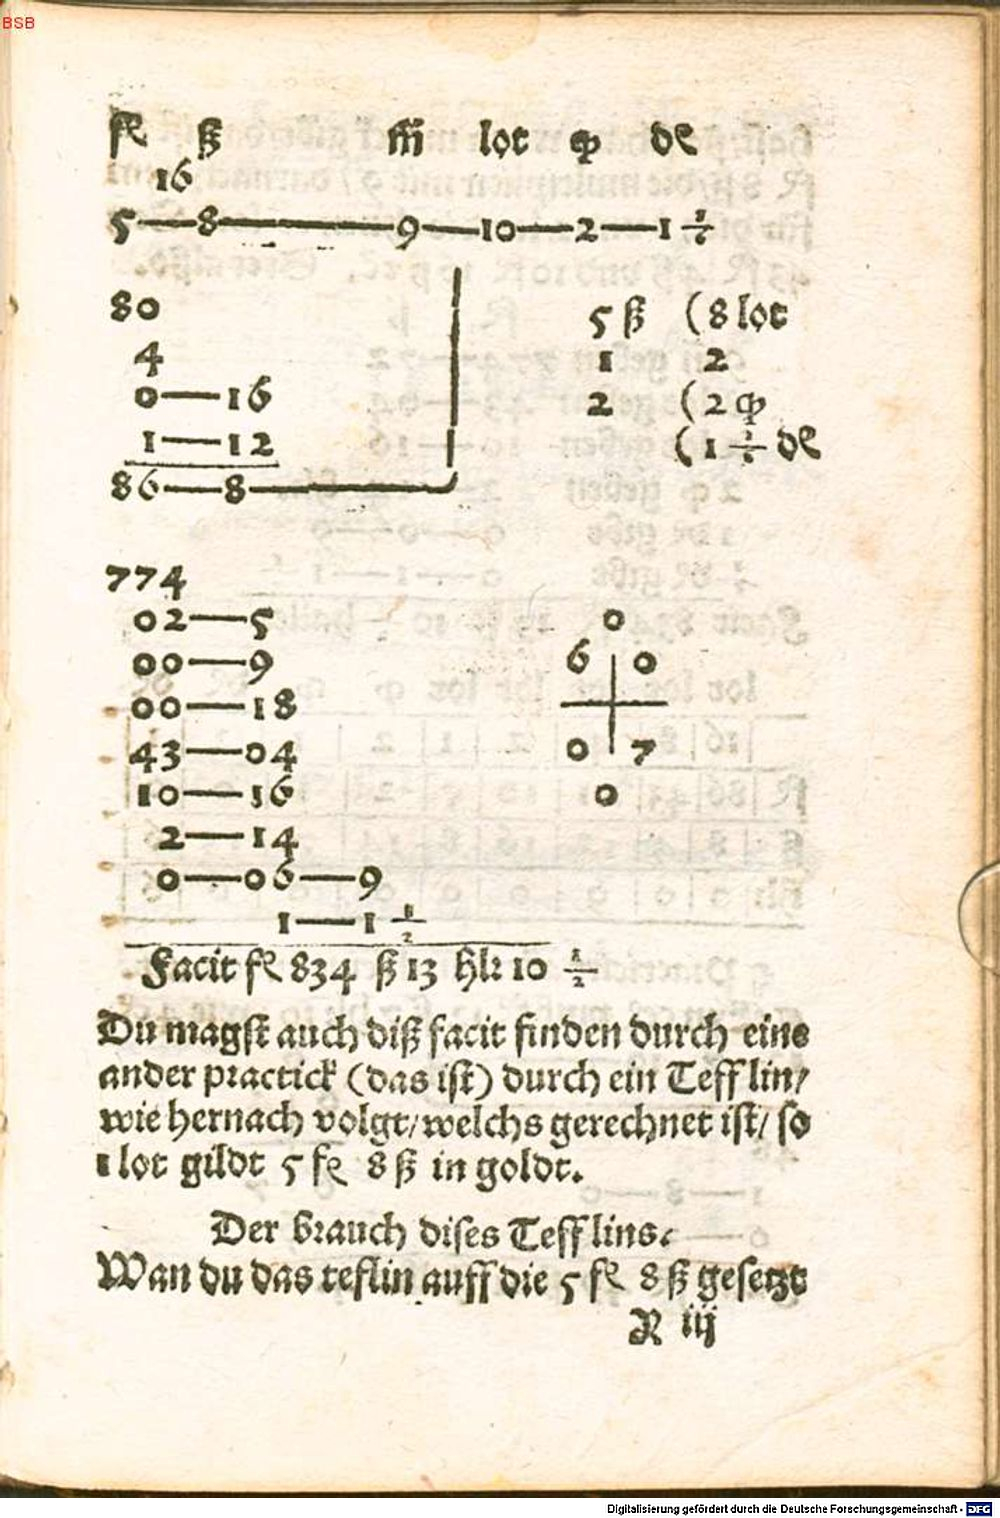 BSB
fl ß m lot qp de
16
5—8—9—10—2—1 1/2
80
4
0—16
1—12
86—8
5 ß (8 lot
1 2
2 (2 qp
(1 1/2 de
774
02—5
00—9
00—18
43—04
10—16
2—14
0—06—9
1—1 1/2
0
6 0
0 7
0
Facit fl 834 ß 13 hlr 10 1/2
Du magſt auch diß facit finden durch eine
ander practick (das iſt) durch ein Tefflin/
wie hernach volgt/welchs gerechnet iſt/ ſo
1 lot gildt 5 fl 8 ß in goldt.
Der brauch diſes Tefflins.
Wan du das teflin auff die 5 fl 8 ß geſetzt
R iij
Digitalisierung gefördert durch die Deutsche Forschungsgemeinschaft - DFG